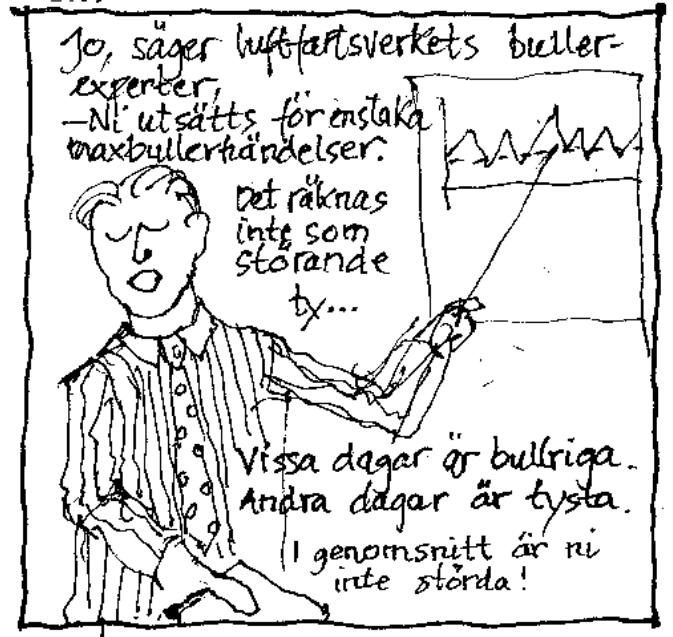 Jo, säger luftfartsverkets buller-
experter,
–Ni utsätts för enstaka
maxbullerhändelser.
Det räknas
inte som
störande
ty...
Vissa dagar är bullriga.
Andra dagar är tysta.
I genomsnitt är ni
inte störda!